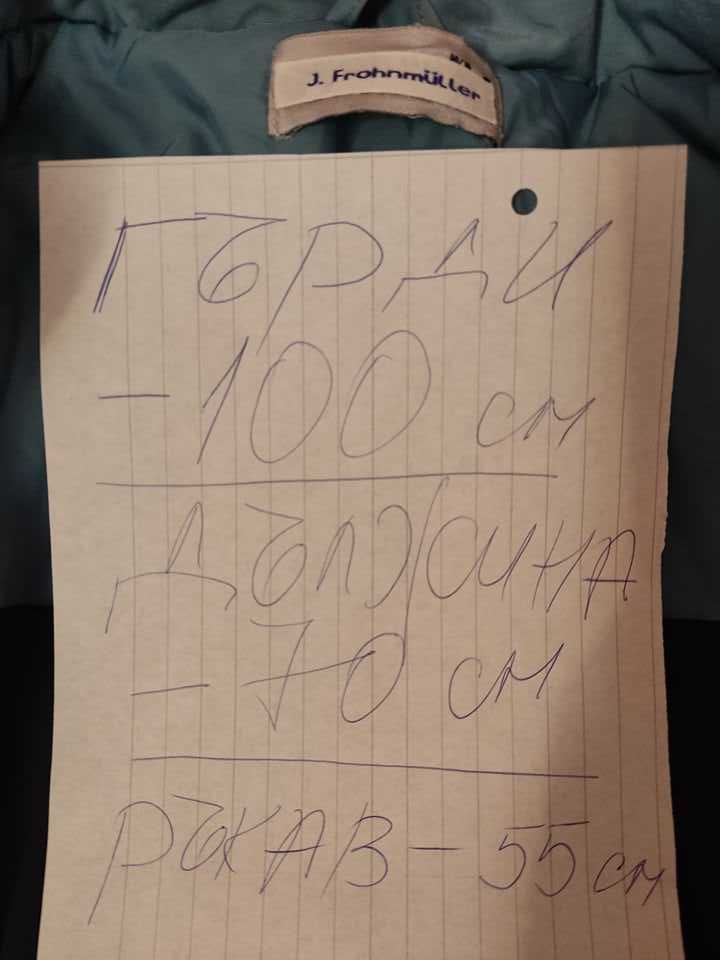 J. Frohnmüller
ГЪРДИ
-100 см
ДЪЛЖИНА
-70 см
РЪКАВ - 55 см